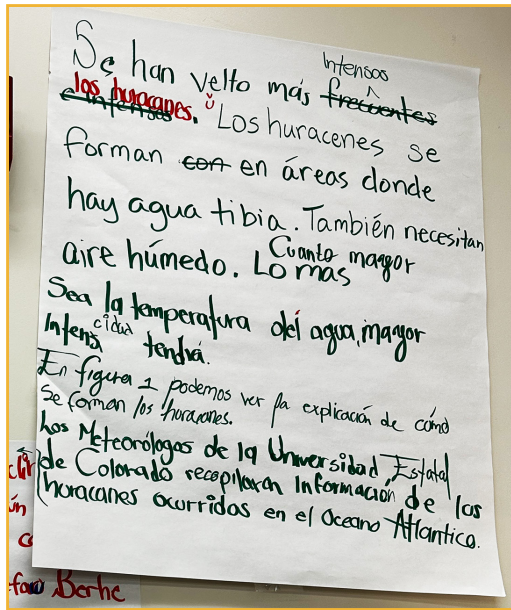 Intensos
Se han velto más frecuentes
los huracanes.
e intensos
Los huracenes se
forman con en áreas donde
hay agua tibia. También necesitan
aire húmedo. Lo mas Cuanto mayor
Sea la temperatura del agua, mayor
Intensicidad tendrá.
En figura 1 podemos ver la explicación de cómo
se forman los huracanes.
Los Meteorólogos de la Universidad Estatal
de Colorado recopilaron Información de los
huracanes ocurridos en el Oceano Atlantico.
Berhe